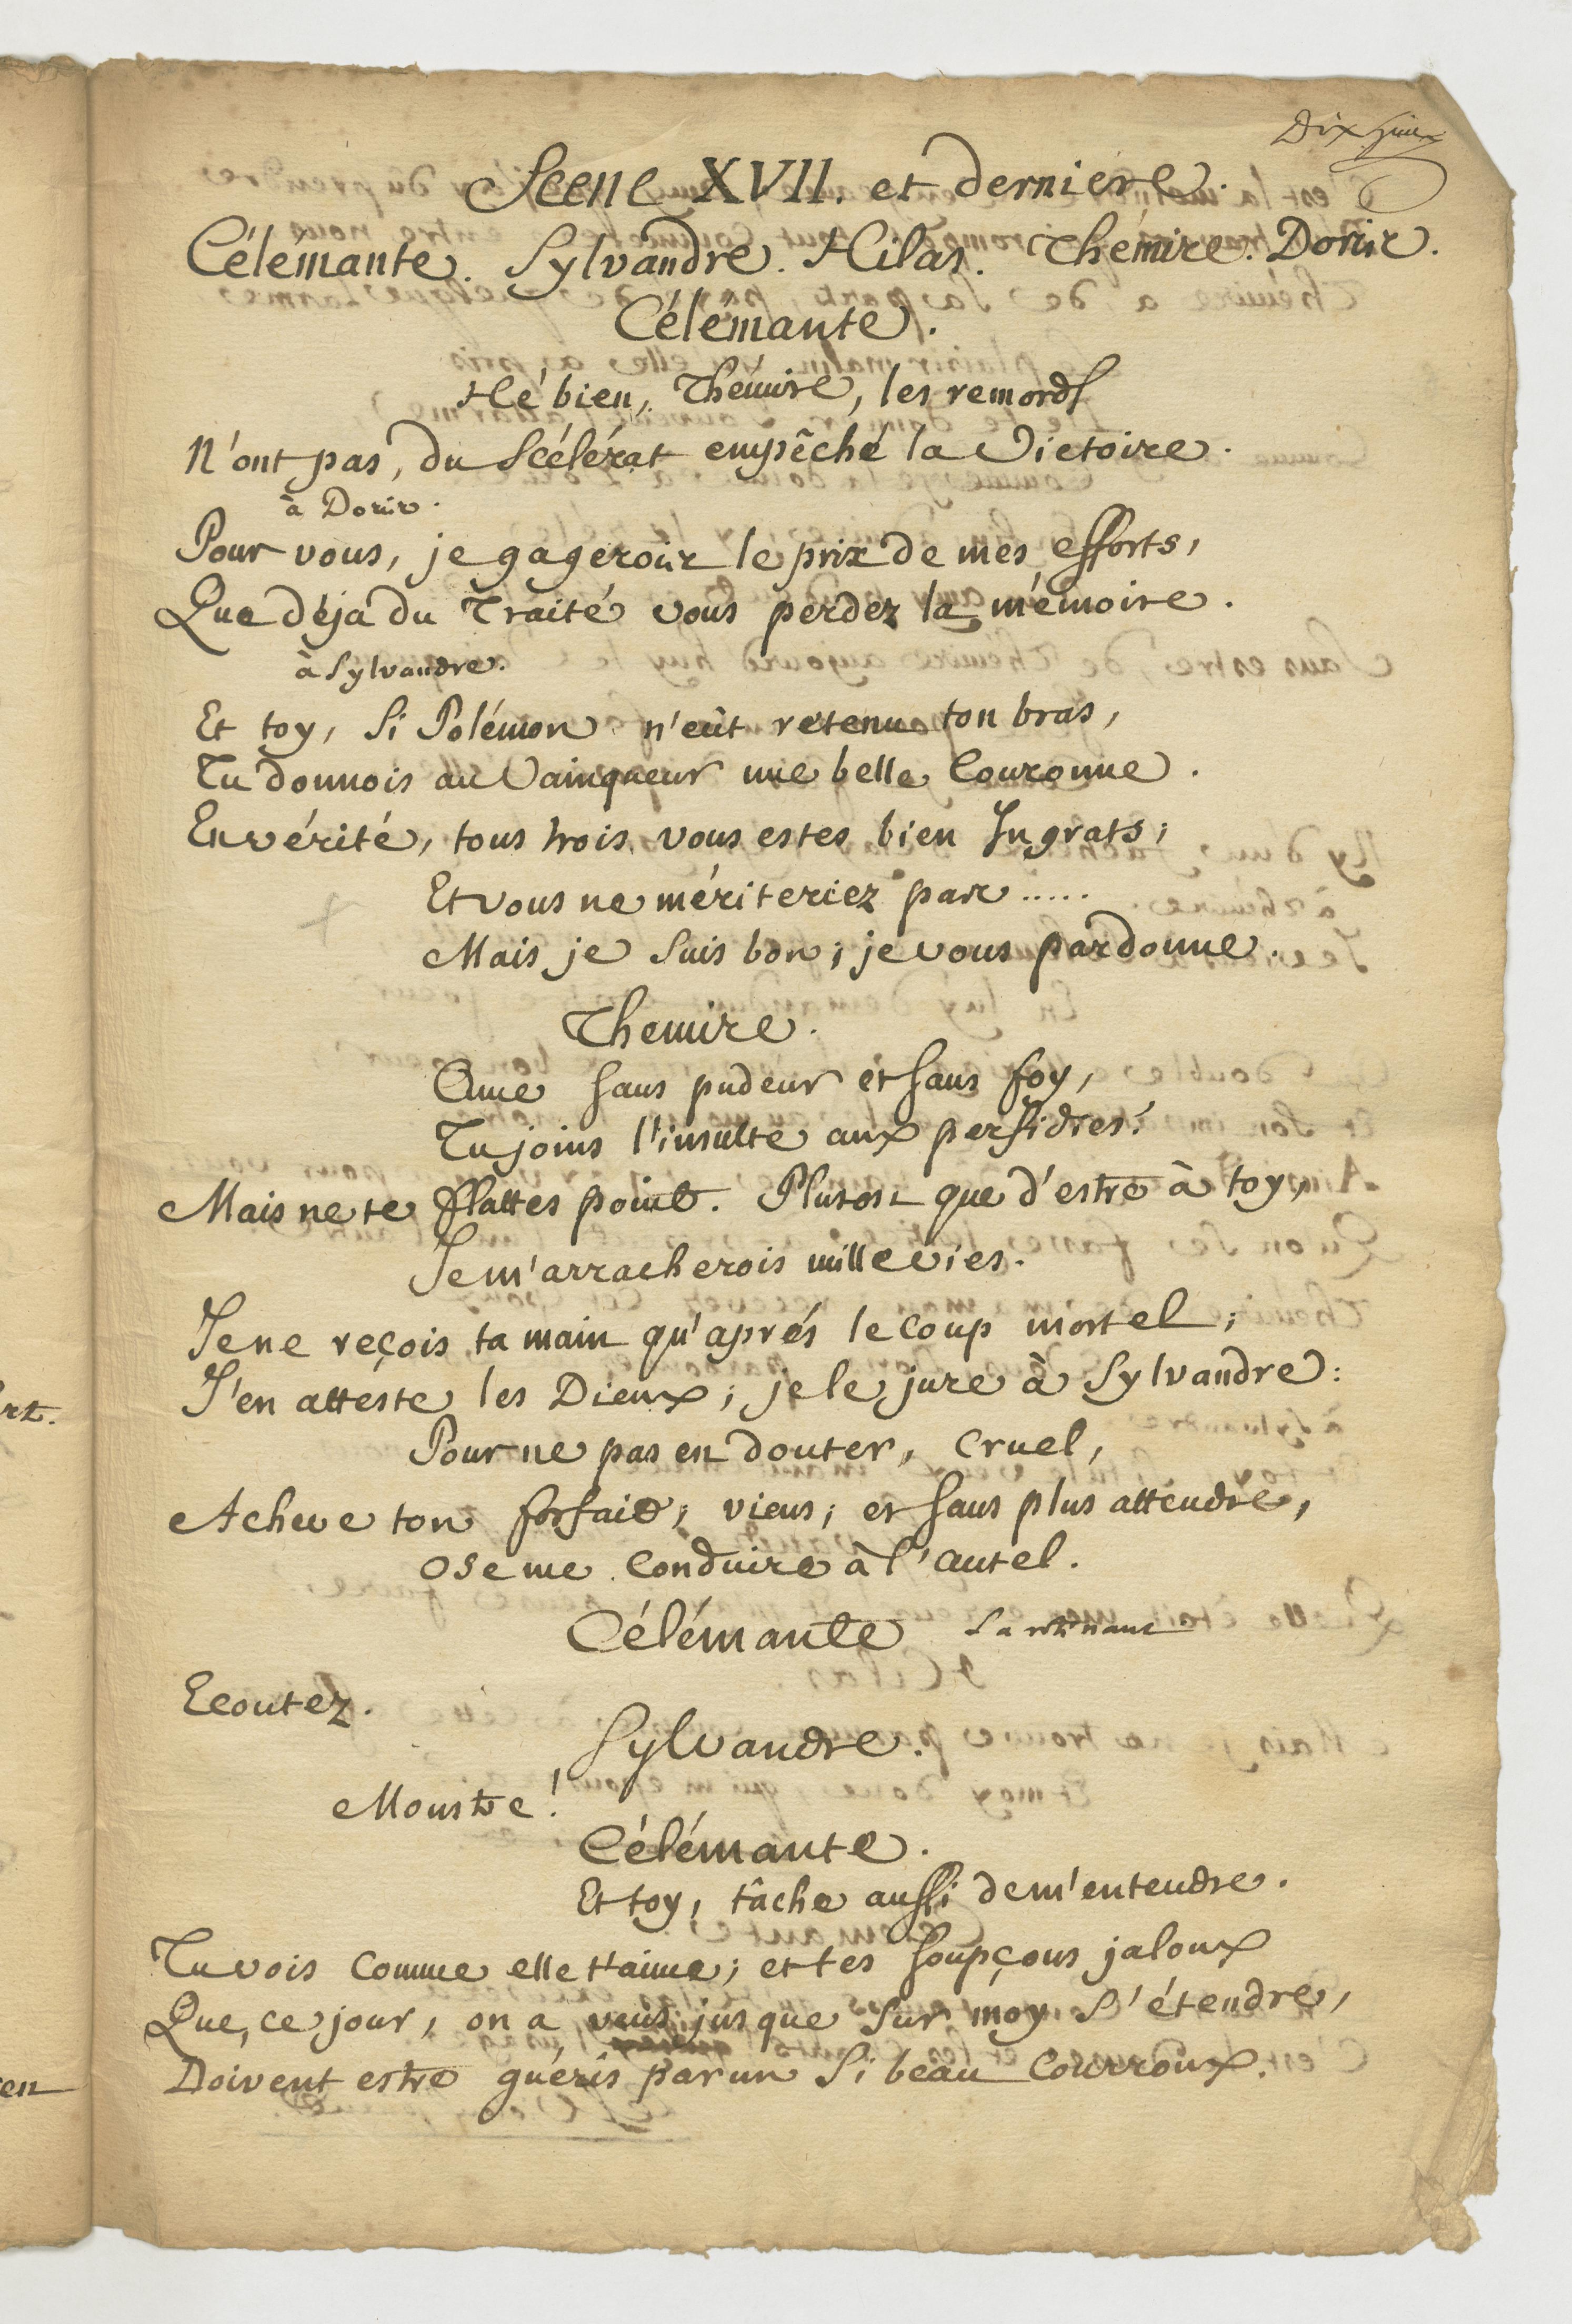 Dix huit
Scene XVII. et derniere.
Célémante. Sylvandre. Hilas. Thémire. Doris.
Célémante.
Hé bien, Thémire, les remords
N'ont pas, du Scélérat empêché la Victoire.
à Doris.
Pour vous, je gagerois le prix de mes efforts,
Que déja du Traité vous perdez la mémoire.
à Sylvandre.
Et toy, si Polémon n'eût retenu ton bras,
Tu donnois au Vainqueur une belle Couronne.
En vérité, tous trois vous estes bien Ingrats;
Et vous ne mériteriez pas.....
Mais je suis bon; je vous pardonne.
Themire.
Ame sans pudeur et sans foy,
Tu joins l'insulte aux perfidies!
Mais ne te flattes point. Plutost que d'estre à toy,
Je m'arracherois mille vies.
Je ne reçois ta main qu'aprés le coup mortel;
J'en atteste les Dieux; je le jure à Sylvandre:
Pour ne pas en douter, Cruel,
Acheve ton forfait; viens; et sans plus attendre,
Ose me Conduire à l'autel.
Célémante la retenant
Ecoutez.
Sylvandre.
Monstre!
Célémante.
Et toy, tâche aussi de m'entendre.
Tu vois Comme elle t'aime; et tes soupçons jaloux
Que, ce jour, on a veus jusque sur moy s'étendre,
Doivent estre guéris par un si beau Courroux.